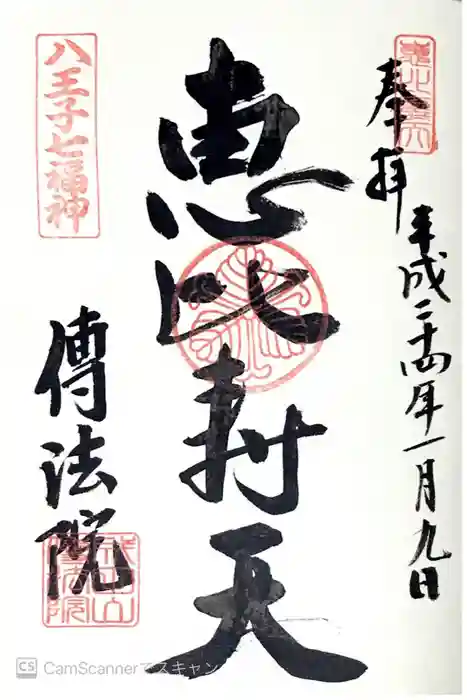 奉拝
平成二十四年一月九日
恵比寿天
八王子七福神
傳法院
CS CamScannerでスキャン